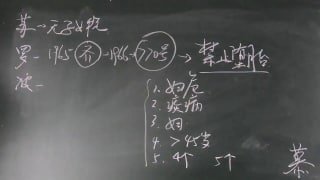 苏一无子女税
罗一1965齐→1966→770号→禁止堕胎
波一
1. 妇危
2. 疾病
3. 妇
4. >45岁
5. 4个 5个
慕